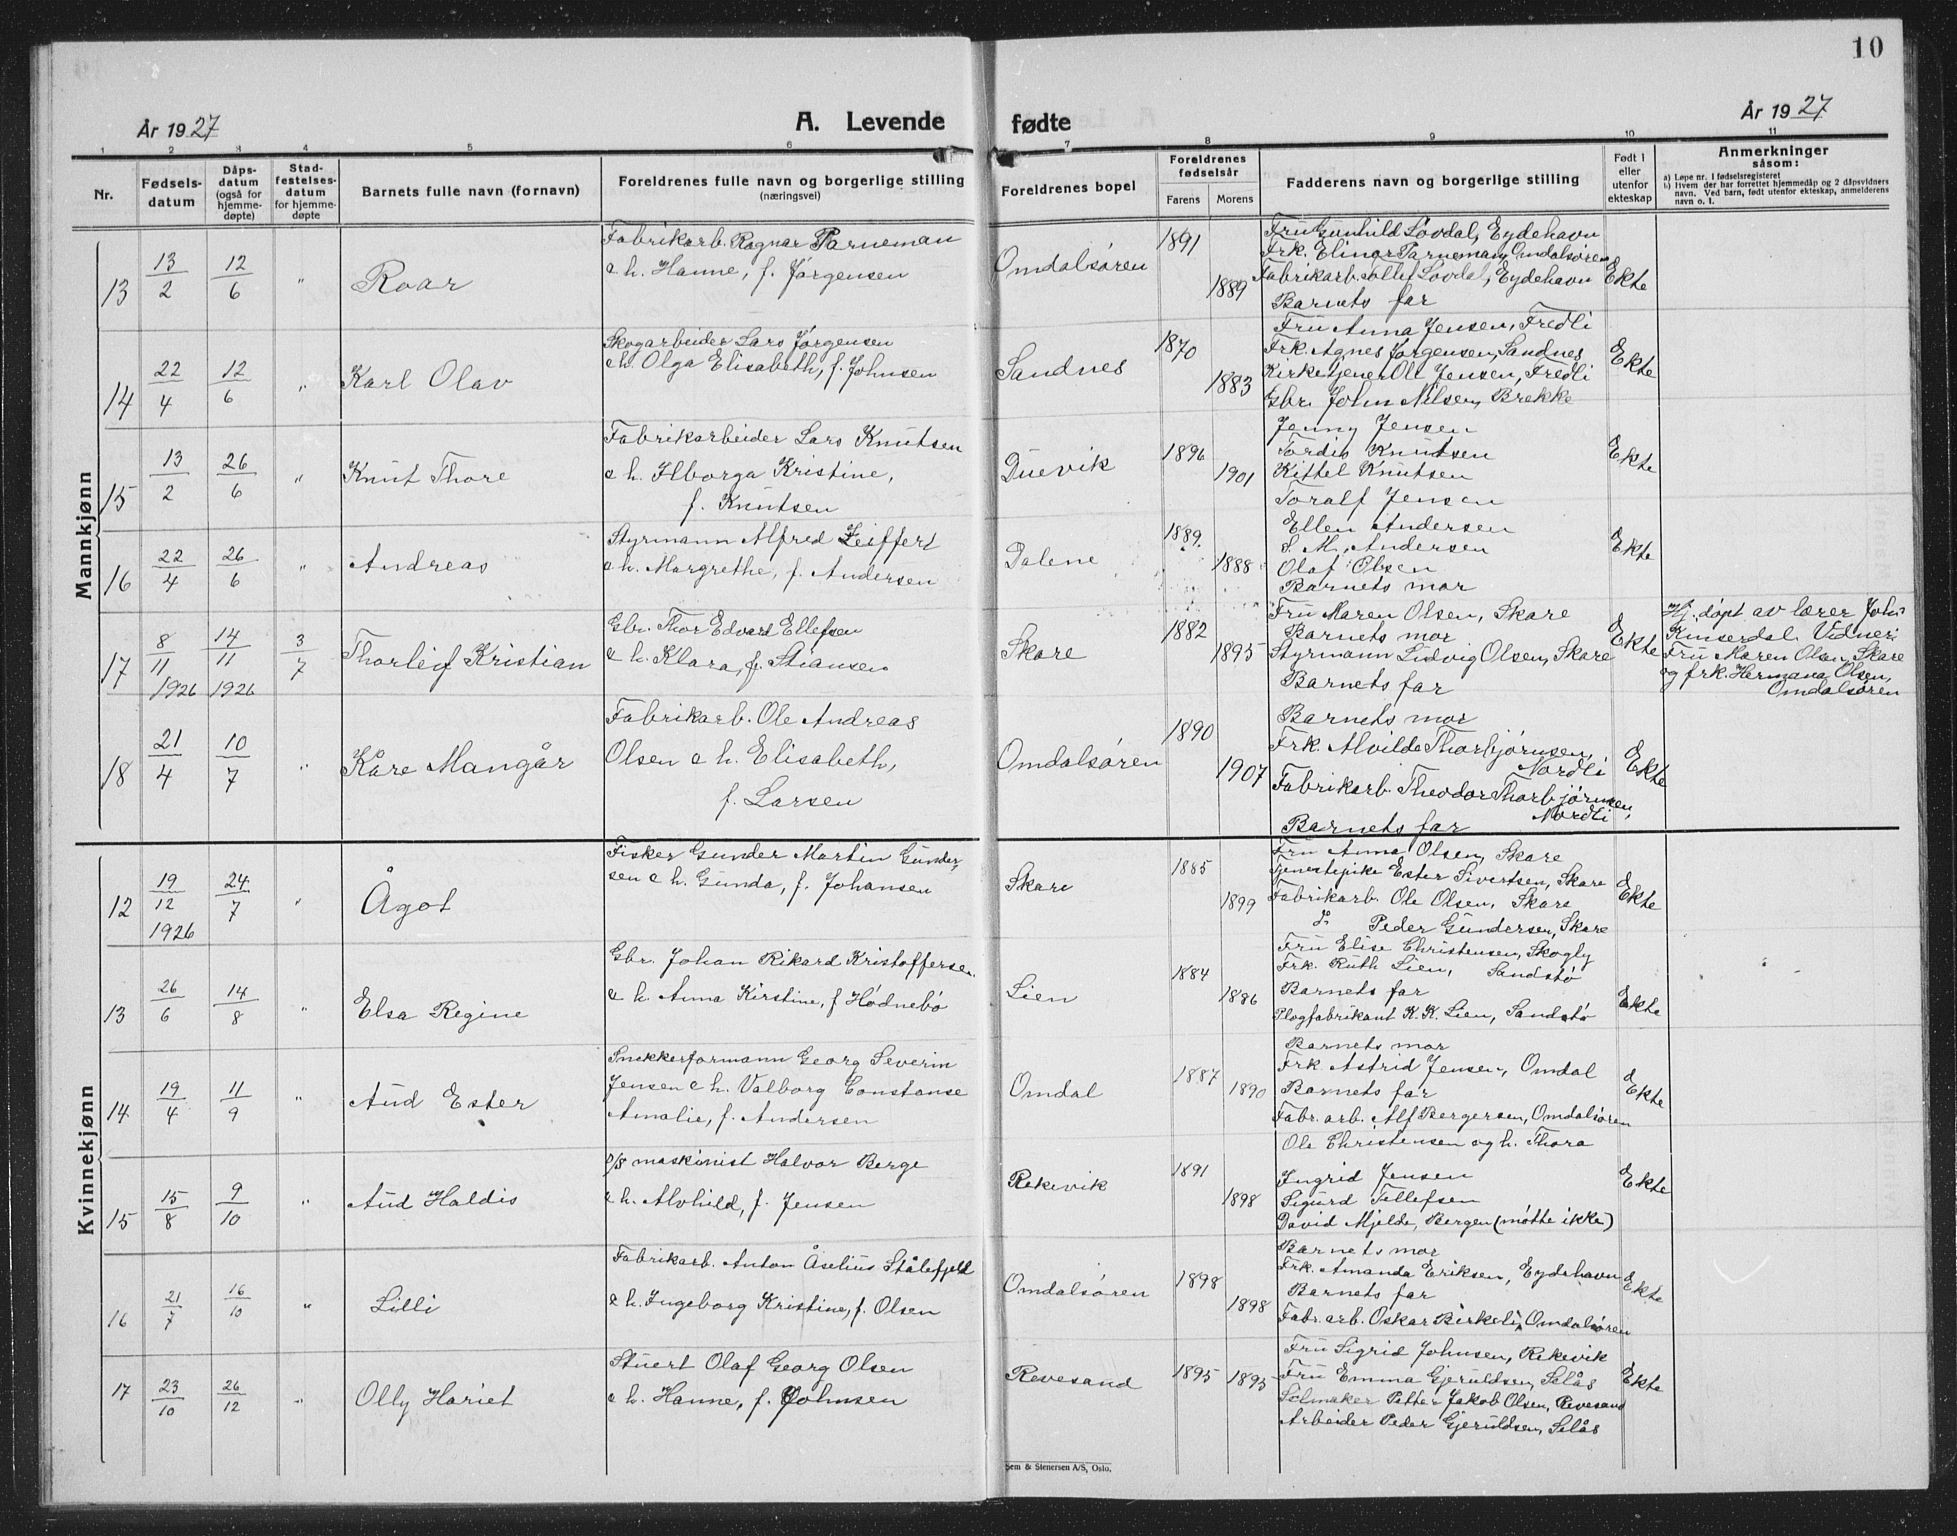 10
År 1927
A. Levende fødte
År 1927
1 2 3 4 5 6 7 8 9 10 11
Nr.
Fødsels-
datum
Dåps-
datum
(også for
hjemme-
døpte)
Stad-
festelses-
datum
for hjemme-
døpte
Barnets fulle navn (fornavn)
Foreldrenes fulle navn og borgerlige stilling
(næringsvei)
Foreldrenes bopel
Foreldrenes
fødselsår
Farens Morens
Fadderens navn og borgerlige stilling
Født i
eller
utenfor
ekteskap
Anmerkninger
såsom:
a) Løpe nr. i fødselsregisteret
b) Hvem der har forrettet hjemmedåp og 2 dåpsvidners
navn. Ved barn, født utenfor ekteskap, anmelderens
navn o. l.
Mannkjønn
13 13/2 12/6 " Roar
Fabrikarb. Ragnar Parneman
e h. Hanne, f. Jørgensen
Omdalsøren 1891 1889
Fru Gunhild Løvdal, Eydehavn
Frk. Elinor Parneman, Omdalsøren
Fabrikarb. Løvdal, Eydehavn
Barnets far
Ekte
14 22/4 12/6 " Karl Olav
Skogarbeider Lars Jørgensen
e h. Olga Elisabeth, f. Johnsen
Sandnes 1870 1883
Fru Anna Jensen, Fredli
Frk. Agnes Jørgensen, Sandnes
Kirketjener Ole Jensen, Fredli
Gbr. John Nilsen, Brekke
Ekte
15 13/2 26/6 " Knut Thore
Fabrikarbeider Lars Knutsen
e h. Ilborga Kristine,
f. Knutsen
Duevik 1896 1901
Jenny Jensen
Tordis Knutsen
Kittel Knutsen
Toralf Jensen
Ekte
16 22/4 26/6 " Andreas
Styrmann Alfred Leiffert
e h. Margrethe, f. Andersen
Dalene 1889. 1888
Ellen Andersen
S. M. Andersen
Olaf Olsen
Barnets mor
Ekte
17 8/11 1926 14/11 1926 3/7 Thorleif Kristian
Gbr. Thor Edvard Ellefsen
e h. Klara, f. Stiansen
Skare 1882 1895
Fru Maren Olsen, Skare
Barnets mor
Styrmann Ludvig Olsen, Skare
Barnets far
Ekte
Hj. døpt av lærer John
Kinserdal. Vidner:
Fru Maren Olsen, Skare
og frk. Hermana Olsen,
Omdalsøren
18 21/4 10/7 " Kåre Mangår
Fabrikarb. Ole Andreas
Olsen e h. Elisabeth,
f. Larsen
Omdalsøren 1890 1907
Barnets mor
Frk. Alvilde Thorbjørnsen,
Nordli
Fabrikarb. Theodor Thorbjørnsen,
Nordli
Barnets far
Ekte
Kvinnekjønn
12 19/12 1926 24/7 " Ågot
Fisker Gunder Martin Gunder-
sen e h. Gunda, f. Johansen
Skare 1885 1899
Fru Anna Olsen, Skare
Tjenestepike Ester Sivertsen, Skare
Fabrikarb. Ole Olsen, Skare
Peder Gundersen, Skare
Ekte
13 26/6 14/8 " Elsa Regine
Gbr. Johan Rikard Kristoffersen
e h. Anna Kirstine, f Hødnebø
Lien 1884 1886
Fru Elise Christensen, Skogly
Frk. Ruth Lien, Sandstø
Barnets far
Plogfabrikant K. K. Lien, Sandstø
Ekte
14 19/4 11/9 " Aud Ester
Snekkerformann Georg Severin
Jensen e h. Valborg Constanse
Amalie, f. Andersen
Omdal 1887 1890
Barnets mor
Frk Astrid Jensen, Omdal
Barnets far
Fabr. arb. Alf Bergersen, Omdalsøren
Ekte
15 15/8 9/10 " Aud Haldis
D/S maskinist Halvor Berge
e h. Alvhild, f. Jensen
Rekevik 1891 1898
Ole Christensen og h. Thora
Ingrid Jensen
Sigurd Tellefsen
David Mjelde, Bergen (møtte ikke)
Ekte
16 21/7 16/10 " Lilli
Fabrikarb. Anton Åselius Stålefjeld
e h. Ingeborg Kristine, f. Olsen
Omdalsøren 1898 1898
Barnets mor
Frk. Amanda Eriksen, Eydehavn
Barnets far
Fabr. arb. Oskar Birkeli, Omdalsøren
Ekte
17 23/10 26/12 " Olly Hariet
Stuert Olaf Georg Olsen
e h. Hanne, f. Johnsen
Revesand 1895 1895
Fru Sigrid Johnsen, Rekevik
Fru Emma Gjeruldsen, Selås
Seilmaker Petter Jakob Olsen, Revesand
Arbeider Peder Gjeruldsen, Selås
Ekte
Sem & Stenersen A/S, Oslo.